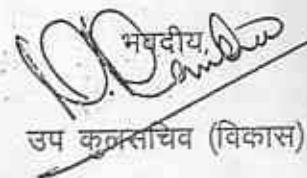 भवदीय,
उप कुलसचिव (विकास)